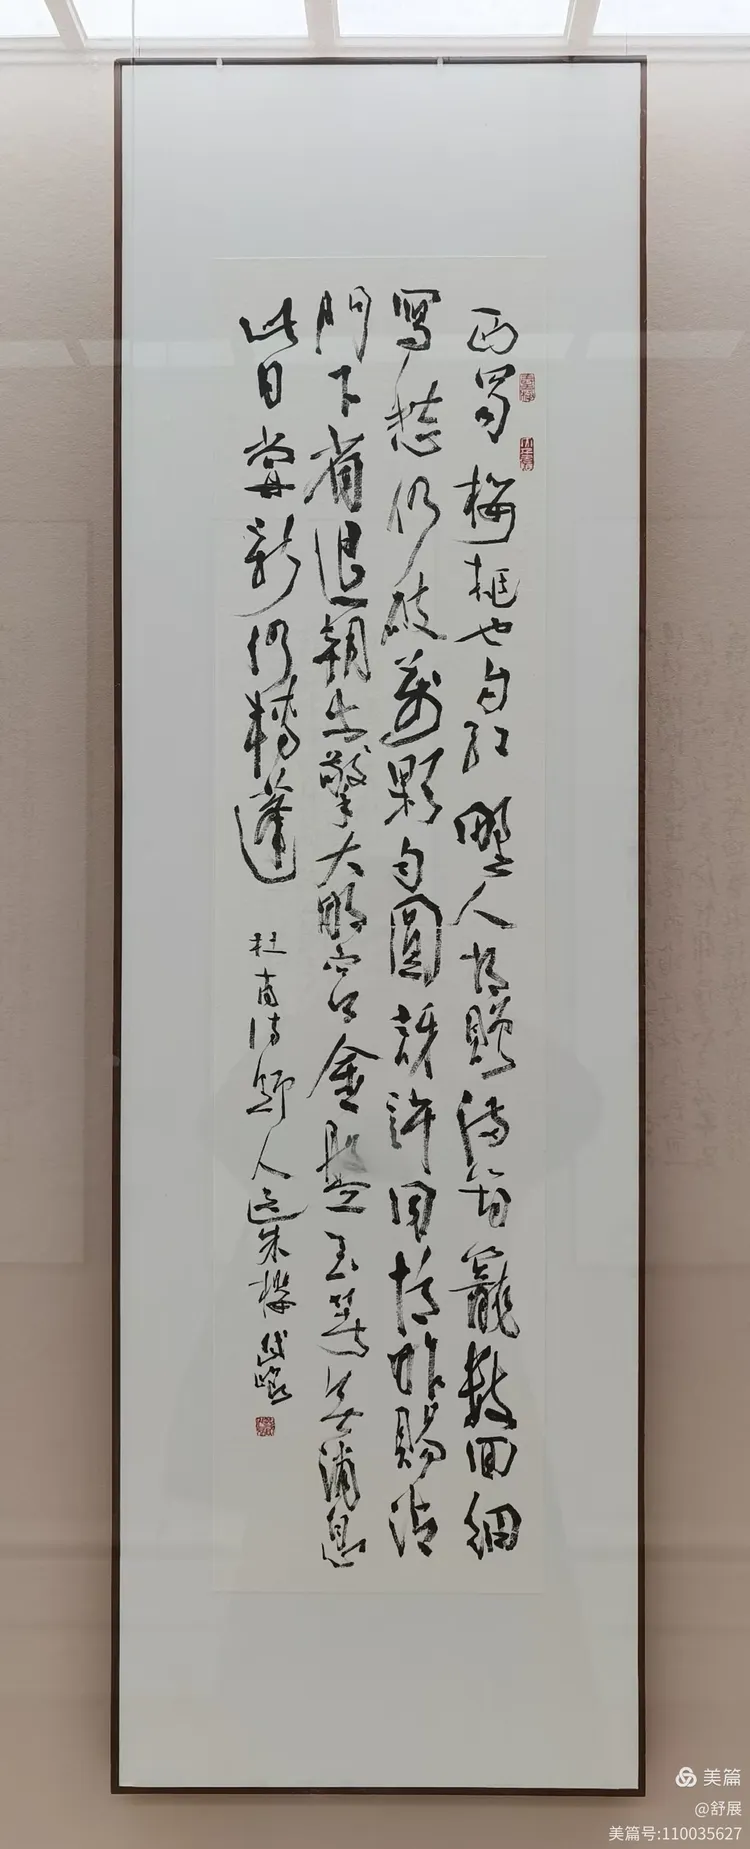 西蜀櫻桃也自紅野人相贈滿筠籠數回細
寫愁仍破萬顆勻圓訝許同憶昨賜沾
門下省退朝出擎大明宮金盤玉箸無消息
此日嘗新任轉蓬
杜甫詩野人送朱櫻
美篇
@舒展
美篇号:110035627